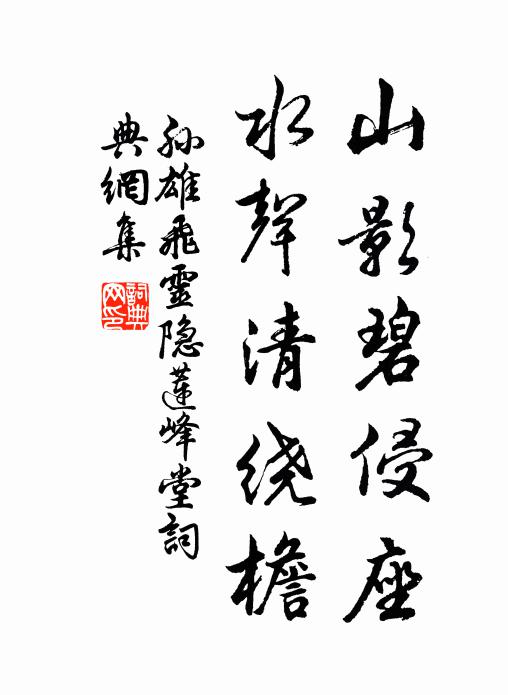 山影碧侵座
水聲清绕檐
孙雄飛靈隐蓮峰堂詞
典網集
詞典网印